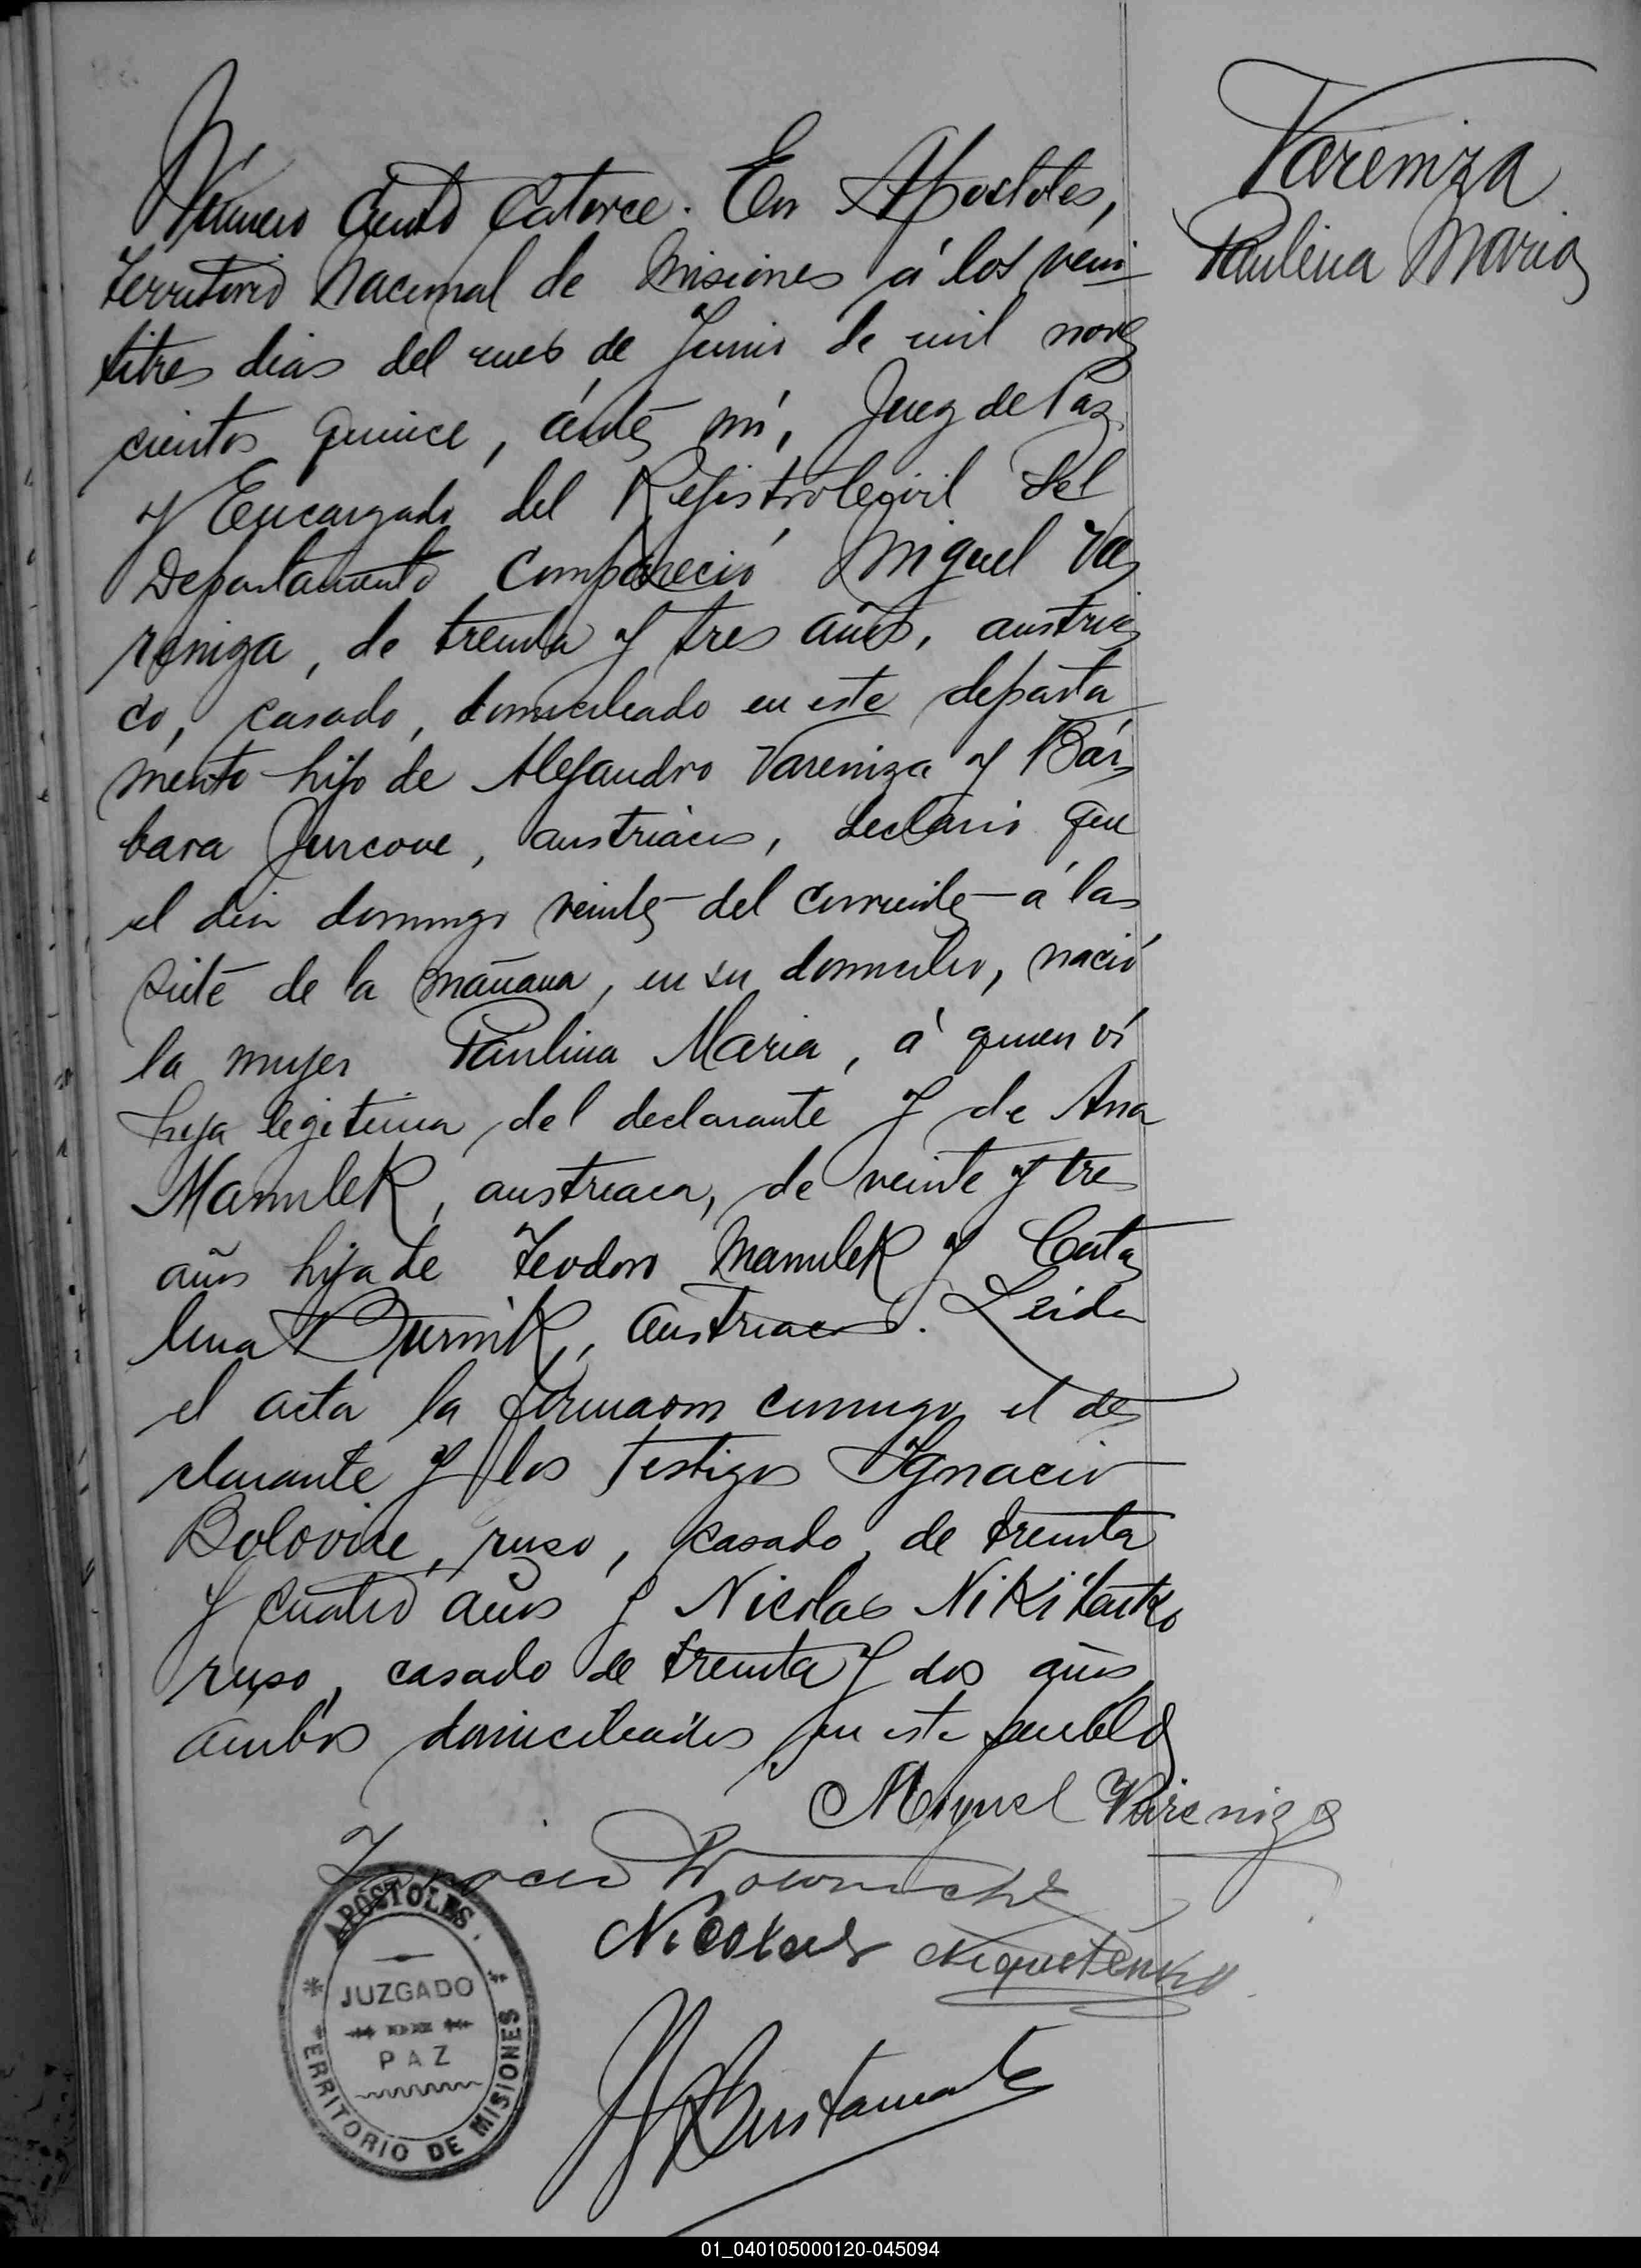 Vareniza
Paulina Maria
Número Ciento Catorce. En Apostoles,
Territorio Nacional de Misiones á los vein
titres dias del mes de Junio de mil nove
cientos quince, ánte mi, Juez de Paz
y Encargado del Registro Civil del
Departamento Compareció Miguel Va
reniza, de treinta y tres años, austria
co, casado, domiciliado en este departa
mento hijo de Alejandro Vareniza y Bár
bara Jurcove, austriacos, declaró que
el dia domingo veinte del corriente á las
siete de la mañana, en su domicilio, nació
la mujer Paulina Maria, á quien ví
hija legitima del declarante y de Ana
Manulek, austriaca, de veinte y tres
años hija de Teodoro Manulek y Cata
lina Durnik, austriacos. Leida
el acta la firmaron conmigo el de
clarante y los testigos Ignacio
Bolovice, ruso, casado, de treinta
y cuatro años y Nicolas Nikitenko
ruso, casado de treinta y dos años,
ambos domiciliados en este pueblo
Miguel Vareniza
Ignacio
Nicolas
Bustamante
APOSTOLES
JUZGADO
DE
PAZ
TERRITORIO DE MISIONES
01_040105000120-045094